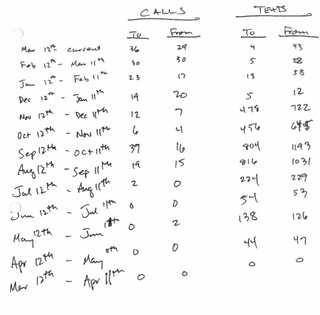 CALLS TEXTS
To From To From
Mar 12th current 36 29 4 43
Feb 12th - Mar 11th 30 30 5 28
Jan 12th - Feb 11th 23 17 13 58
Dec 12th - Jan 11th 19 20 5 12
Nov 12th - Dec 11th 12 7 478 722
Oct 12th - Nov 11th 6 4 456
Sep 12th - Oct 11th 39 16 804 1193
Aug 12th - Sep 11th 19 15 816 1031
Jul 12th - Aug 11th 2 0 224 229
Jun 12th - Jul 11th 0 0 54 53
May 12th - Jun 11th 0 2 138 126
Apr 12th - May 11th 0 0 44 47
Mar 12th - Apr 11th 0 0 0 0